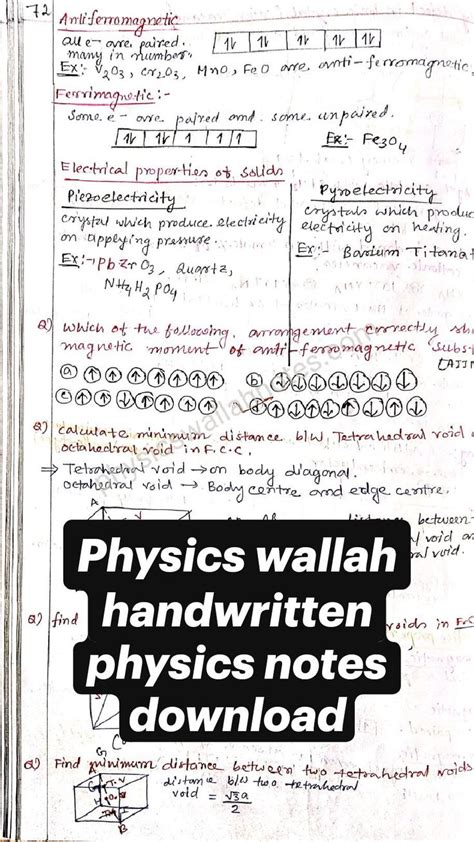 72
Antiferromagnetic
all e- are paired.
many in number.
1↓ 1↓ 1↓ 1↓ 1↓
Ex:- V2O3, Cr2O3, MnO, FeO are anti-ferromagnetic
Ferrimagnetic:-
Some e- are paired and some unpaired.
1↓ 1↓ 1 1 1
Ex:- Fe3O4
Electrical properties of solids
Piezoelectricity
crystal which produce electricity
on applying pressure.
Ex:- PbZrO3, Quartz,
NH4H2PO4
Pyroelectricity
crystals which produc
electricity on heating.
Ex:- Barium Titanat
Q) which of the following, arrangement correctly sho
magnetic moment of anti-ferromagnetic subst
[AIIM
(a) ↑ ↑ ↑ ↑ ↑ ↑ ↑
(b)
(c)
physicswallahnotes.com
Q) calculate minimum distance b/w, Tetrahedral void
octahedral void in F.C.C.
⇒ Tetrahedral void → on body diagonal.
octahedral void → Body centre and edge centre.
A
distance between
void
void.
Physics wallah
handwritten
physics notes
download
Q) find
voids in FCC
C
G
Q) Find minimum distance between two tetrahedral voids
distance b/w two tetrahedral
void = √3a/2
A
B